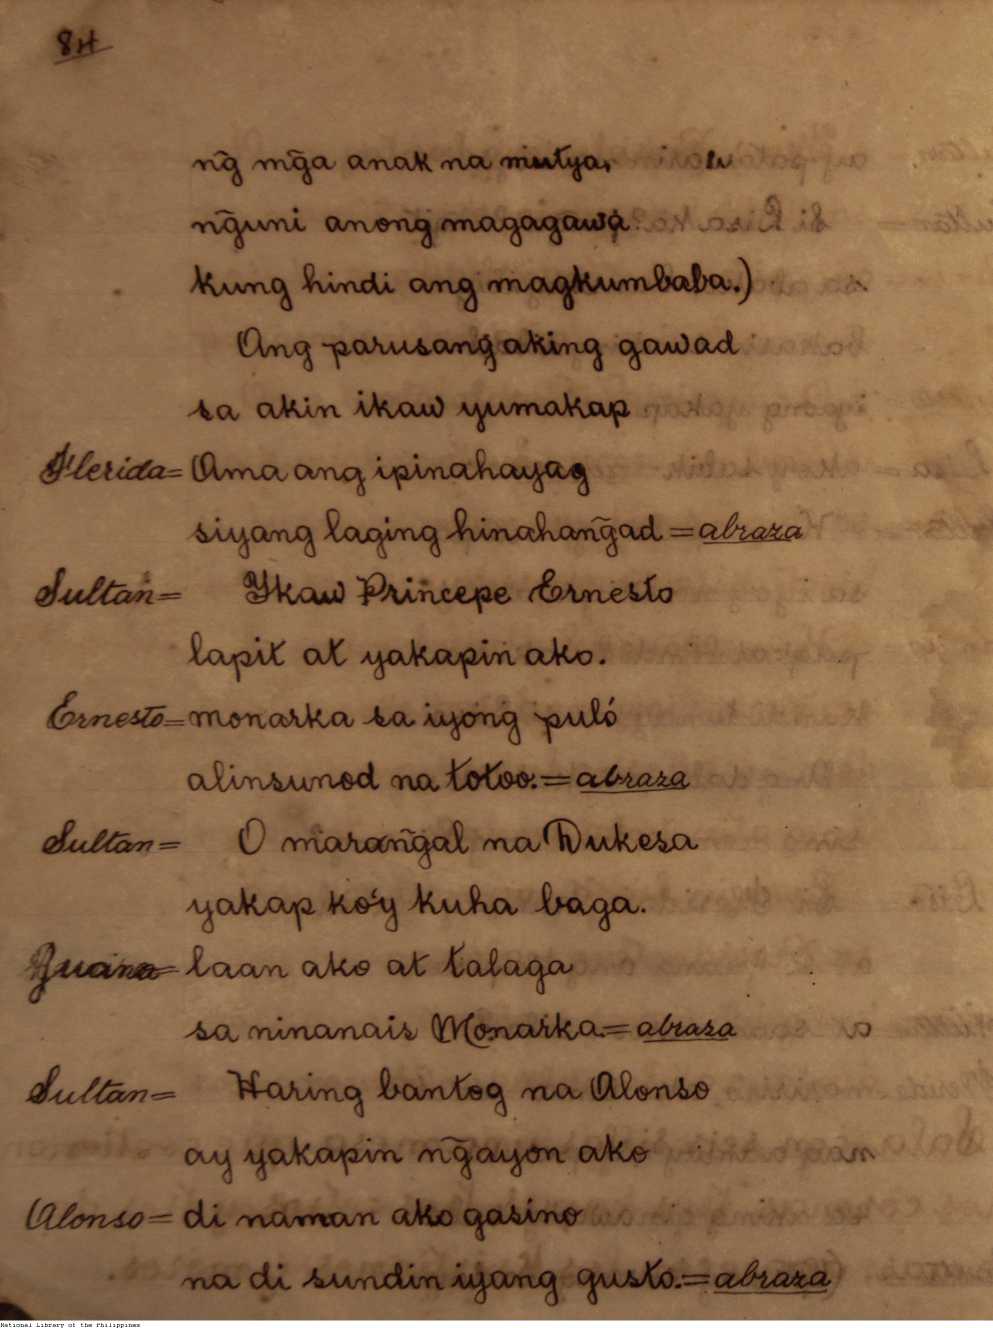 84
ng̃ mg̃a anak na mutya,
ng̃uni anong magagawa
kung hindi ang magkumbaba.)
Ang parusang aking gawad
sa akin ikaw yumakap
Flerida= Ama ang ipinahayag
siyang laging hinahang̃ad = abraza
Sultan= Ykaw Principe Ernesto
lapit at yakapin ako.
Ernesto= monarka sa iyong puló
alinsunod na totoo. = abraza
Sultan= O marang̃al na Dukesa
yakap ko'y kuha baga.
laan ako at talaga
sa ninanais Monarka = abraza
Sultan= Haring bantog na Alonso
ay yakapin ng̃ayon ako
Alonso= di naman ako gasino
na di sundin iyang gusto. = abraza
National Library of the Philippines